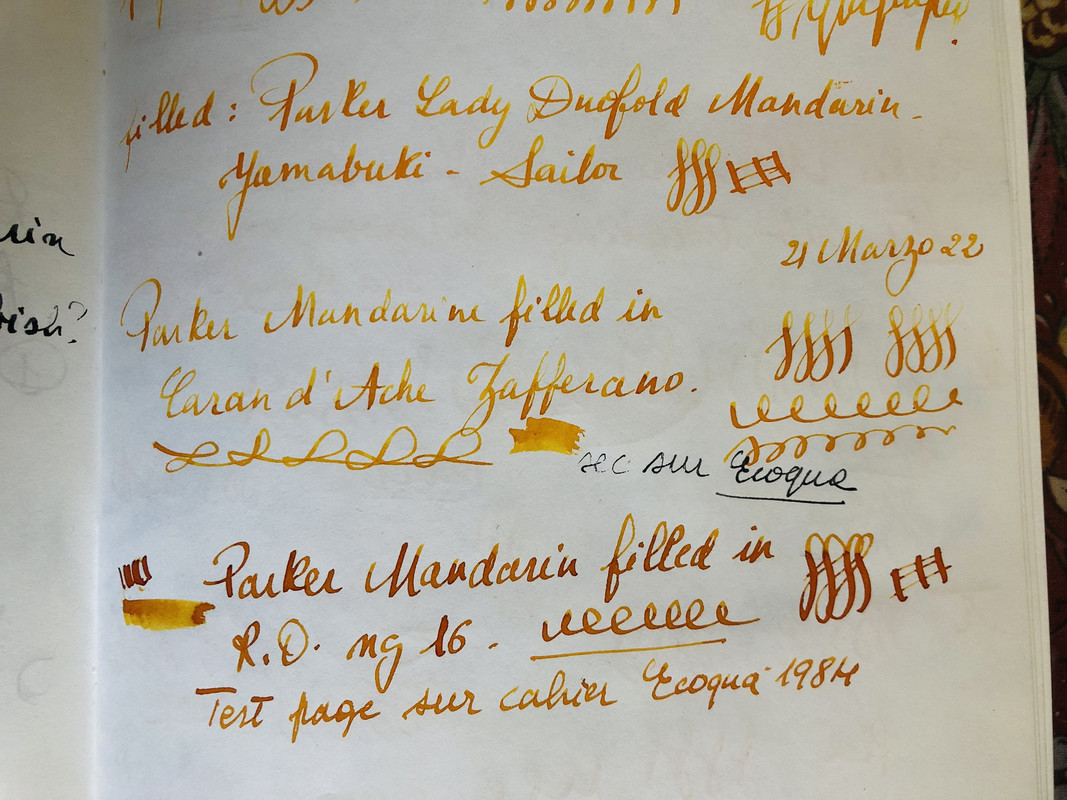 filled: Parker Lady Duofold Mandarin.
Yamabuki - Sailor
21 Marzo 22
Parker Mandarine filled in
Caran d'Ache Zafferano.
sec sur Ecoqua
Parker Mandarin filled in
R.O. ng 16.
Test page sur cahier Ecoqua 1984